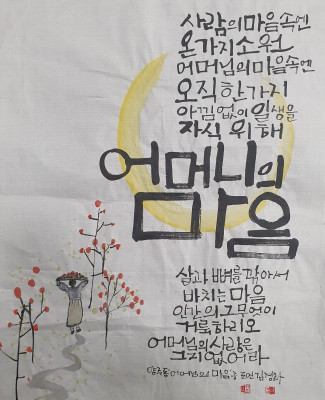 사람의마음속엔
온가지소원
어머님의마음속엔
오직한가지
아낌없이일생을
자식위해
어머니의
마음
살과뼈를깎아서
바치는마음
인간의그무엇이
거룩하리오
어머님의사랑은
그지없어라
양주동 어머니의 마음을 쓰다